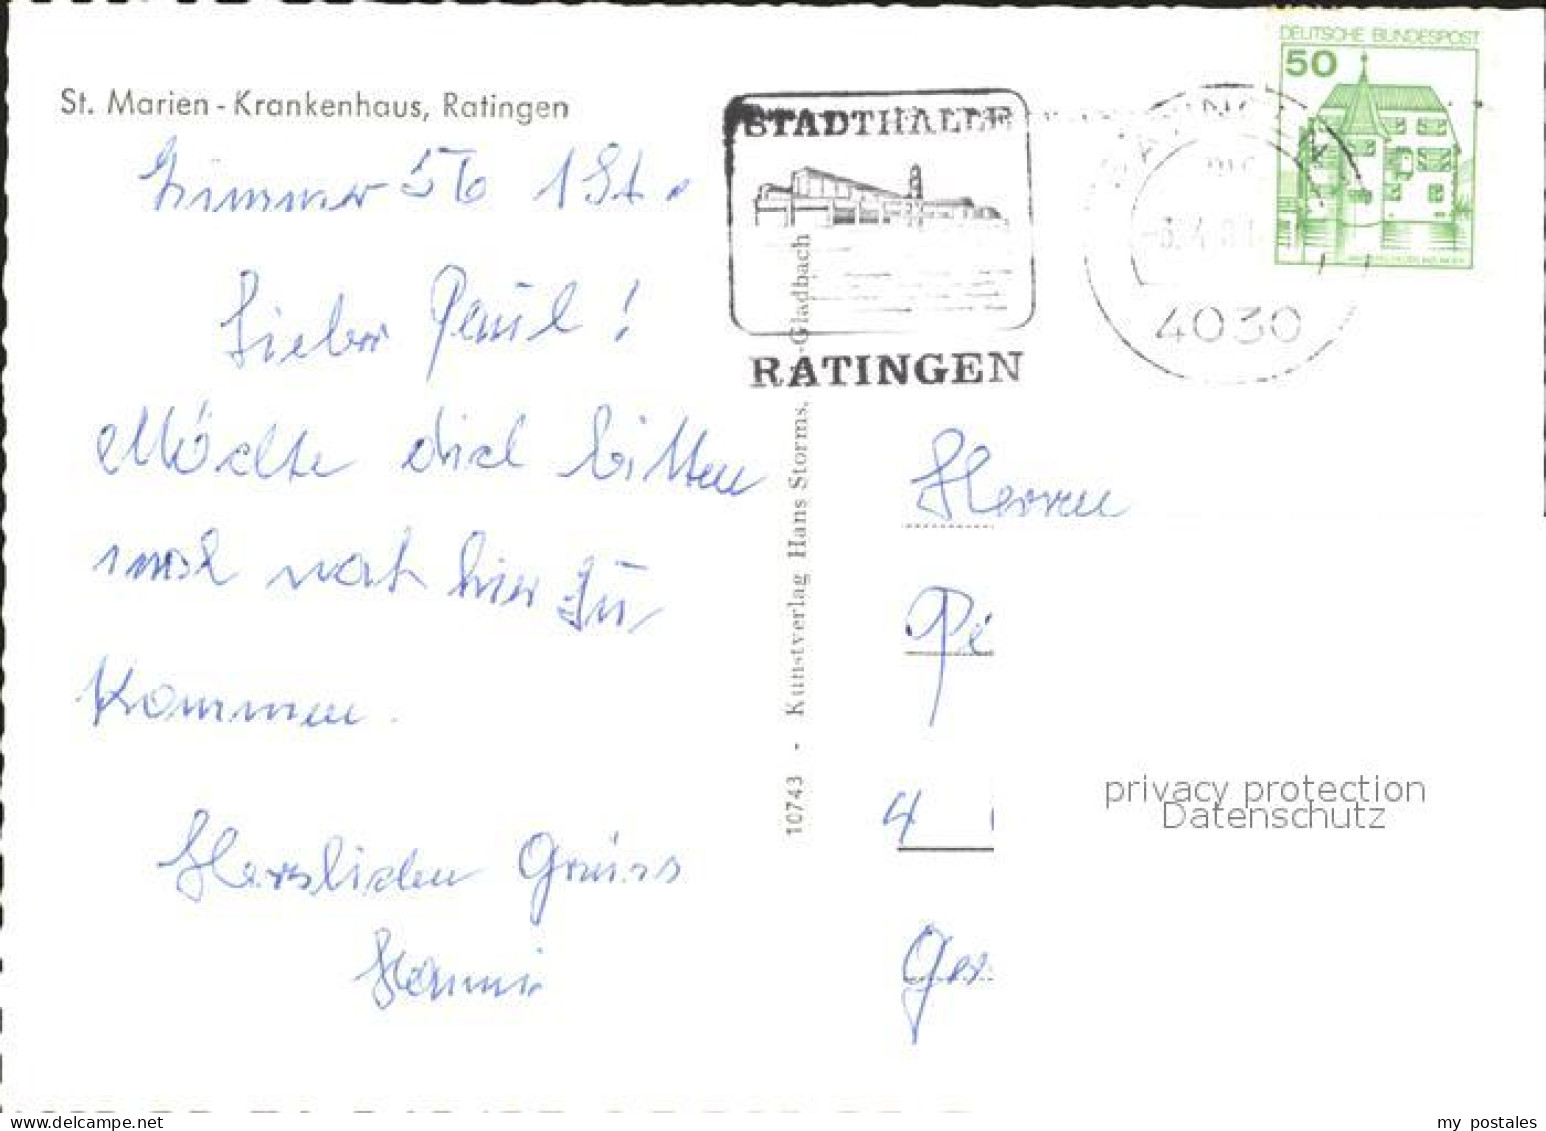 St. Marien-Krankenhaus, Ratingen
Zimmer 56 1 St.
Lieber Paul!
Möchte dich bitten
mal nach hier zu
Kommen.
Herzlichen Gruss
Hanni
10743 - Kunstverlag Hans Storms, -Gladbach
STADTHALLE
RATINGEN
4030
DEUTSCHE BUNDESPOST
50
Herren
Pe
4
Ger
privacy protection
Datenschutz
my postales